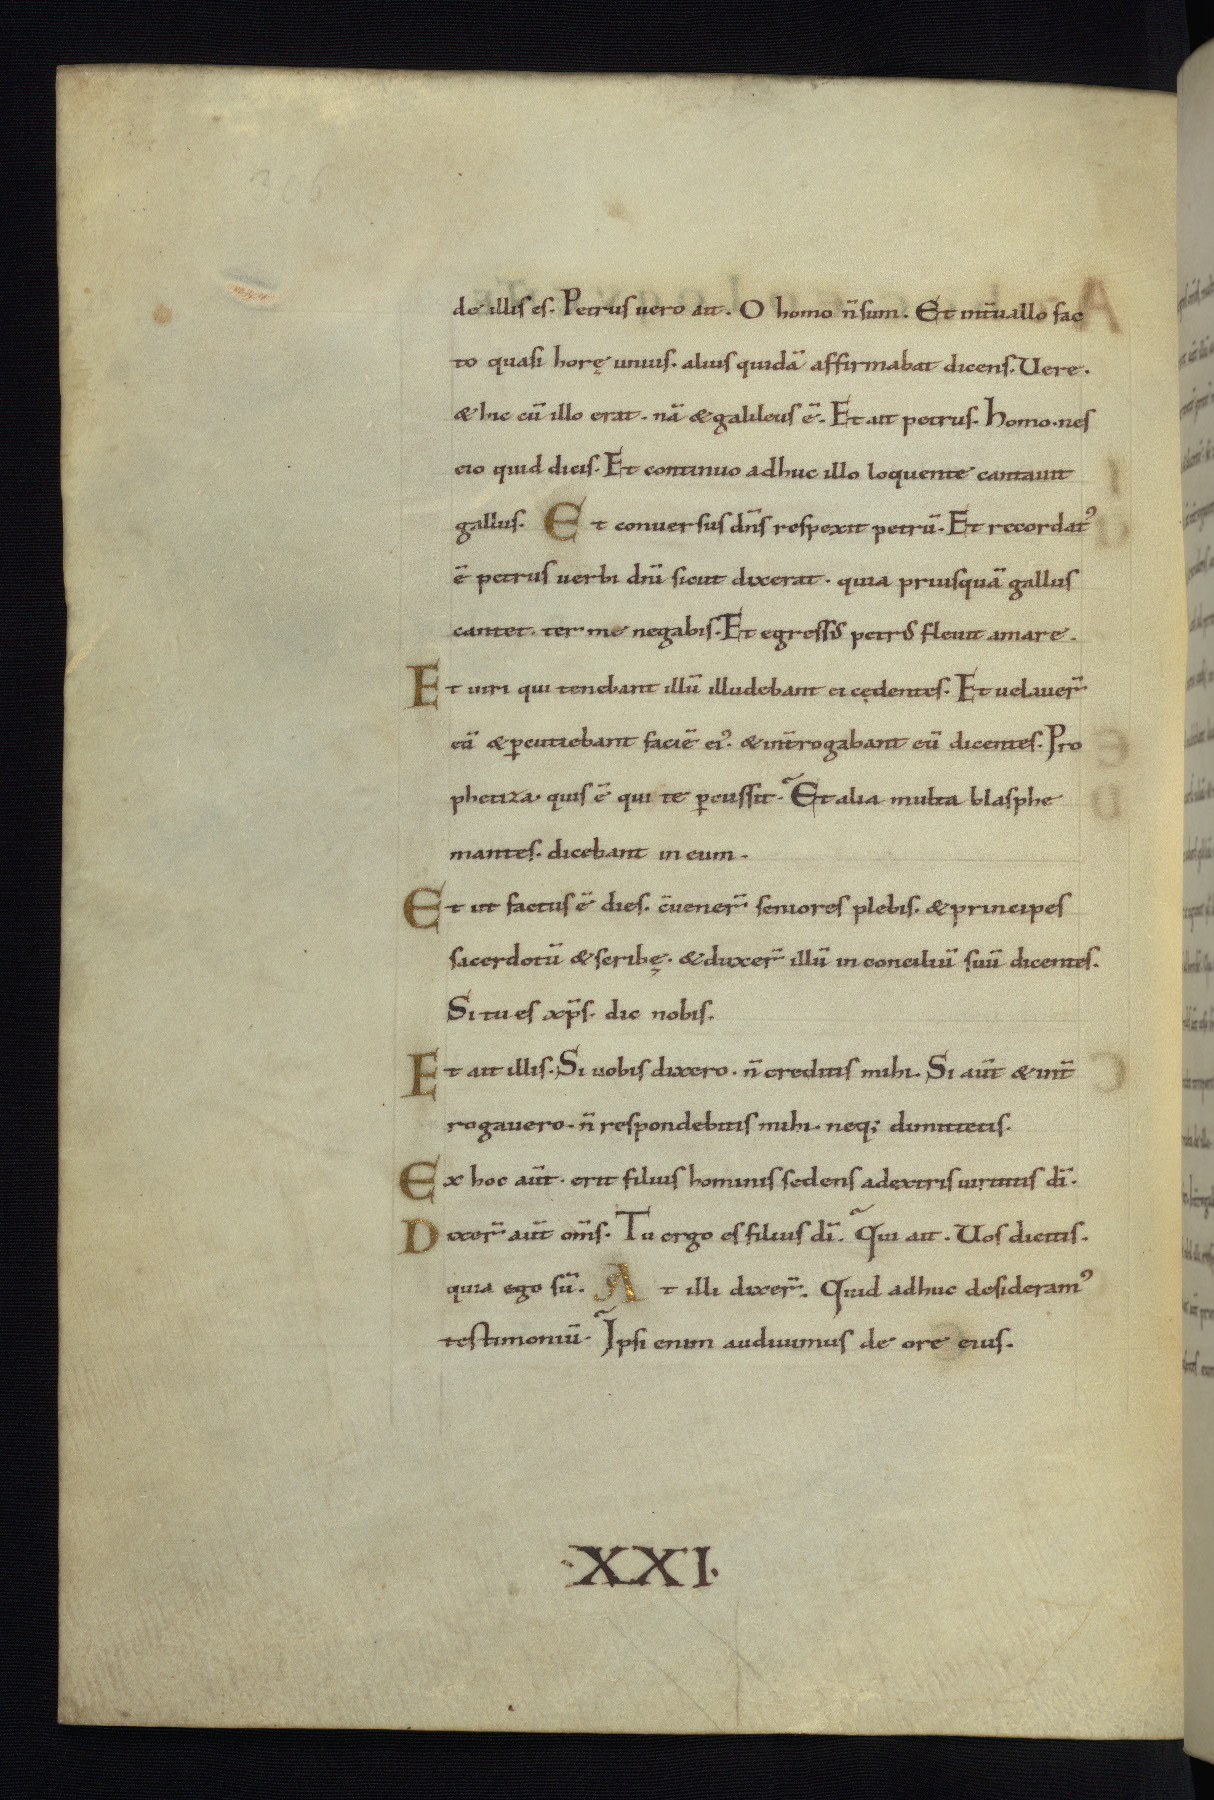 306
de illis es. Petrus uero ait. O homo n̄ sum. Et int̄uallo fac
to quasi horę unius. alius quidā affirmabat dicens. Uere.
& hic cū illo erat. nā & galileus ē. Et ait petrus. homo. nes
cio quid dicis. Et continuo adhuc illo loquente cantauit
gallus. Et conuersus dn̄s respexit petrū. Et recordat᾿
ē petrus uerbi dn̄i sicut dixerat. quia priusquā gallus
cantet. ter me negabis. Et egressꝰ petrꝰ fleuit amare.
Et uiri qui tenebant illū illudebant ei cędentes. Et uelauer̄
eū & ꝑcutiebant faciē ei᾿. & int̄rogabant eū dicentes. Pro
phetiza. quis ē qui te ꝑcussit. Et alia multa blasphe
mantes. dicebant in eum.
Et ut factus ē dies. c̄uener̄ seniores plebis. & principes
sacerdotū & scribę. & duxer̄ illū in conciliū suū dicentes.
Si tu es xp̄s. dic nobis.
Et ait illis. Si uobis dixero. n̄ creditis mihi. Si aūt & int̄
rogauero. n̄ respondebitis mihi. neq; dimittetis.
Ex hoc aūt. erit filius hominis sedens adextris uirtutis dī.
Dixer̄ aūt om̄s. Tu ergo es filius dī. Qui ait. Uos dicitis.
quia ego sū. At illi dixer̄. Quid adhuc desideram᾿
testimoniū. Ipsi enim audiuimus de ore eius.
·XXI·